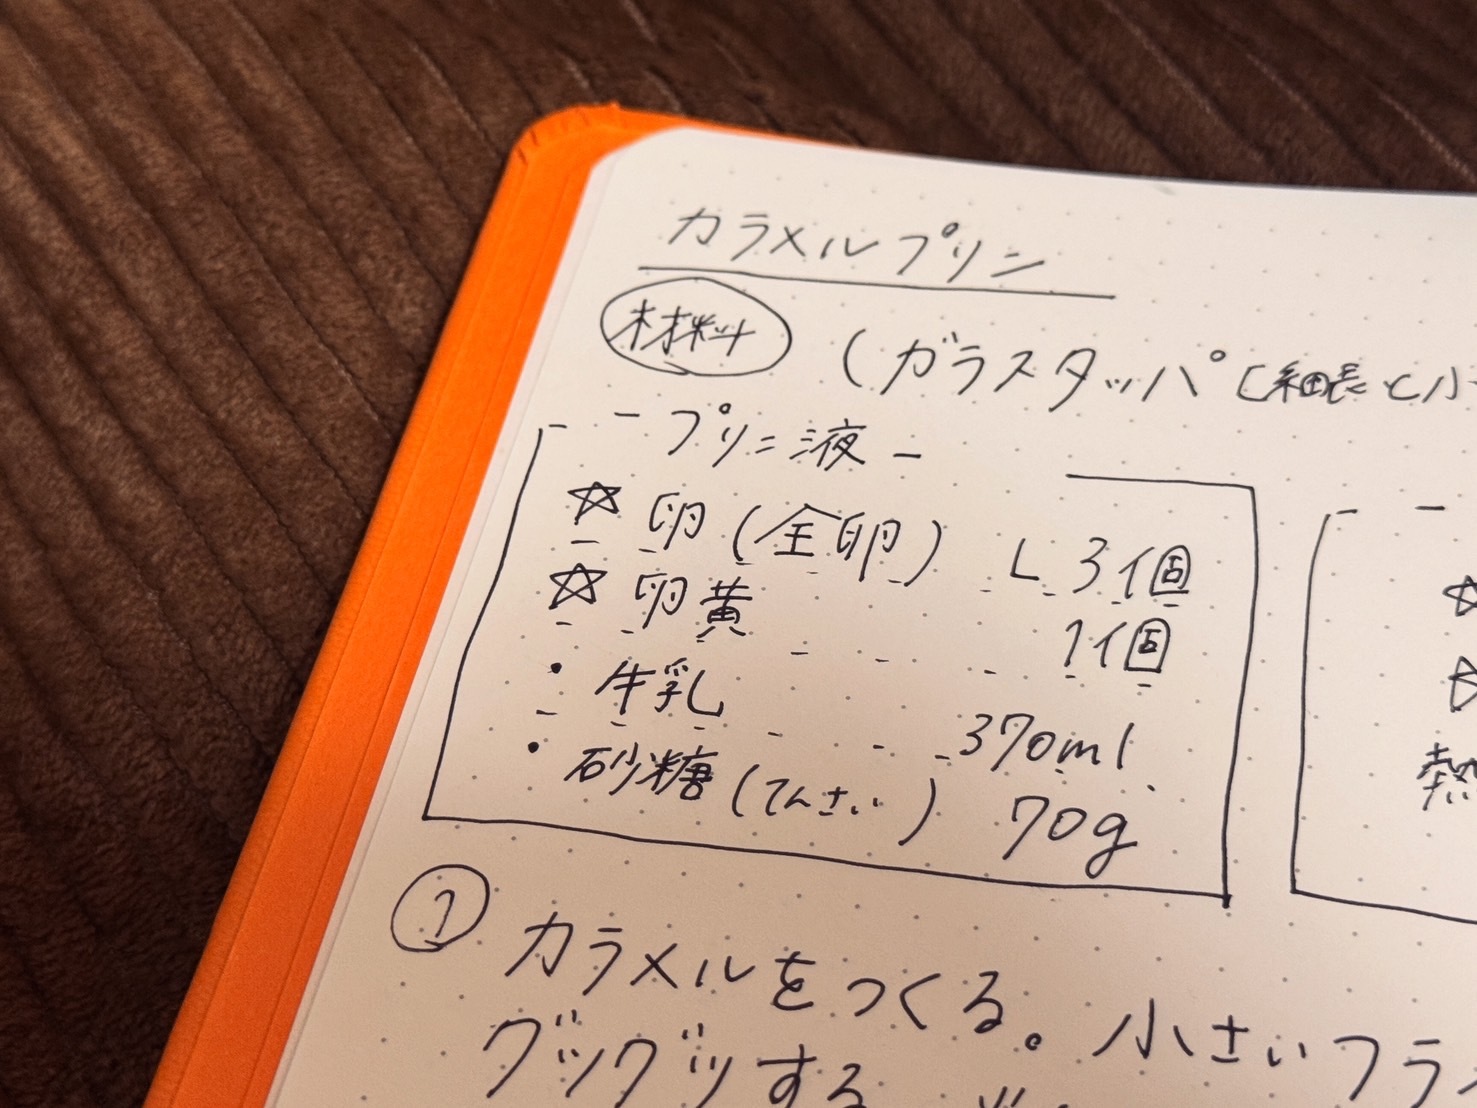 カラメルプリン
材料 (ガラスタッパ[細長と小
- プリン液 -
☆ 卵(全卵) L 3個
☆ 卵黄 1個
・ 牛乳 370ml
・ 砂糖(てんさい) 70g
熱
① カラメルをつくる。小さいフラ
グツグツする